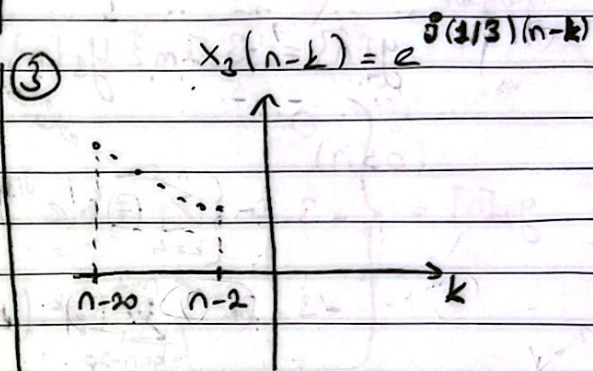 ③ x₃(n-k) = e^j(1/3)(n-k)
n-20 n-2 k